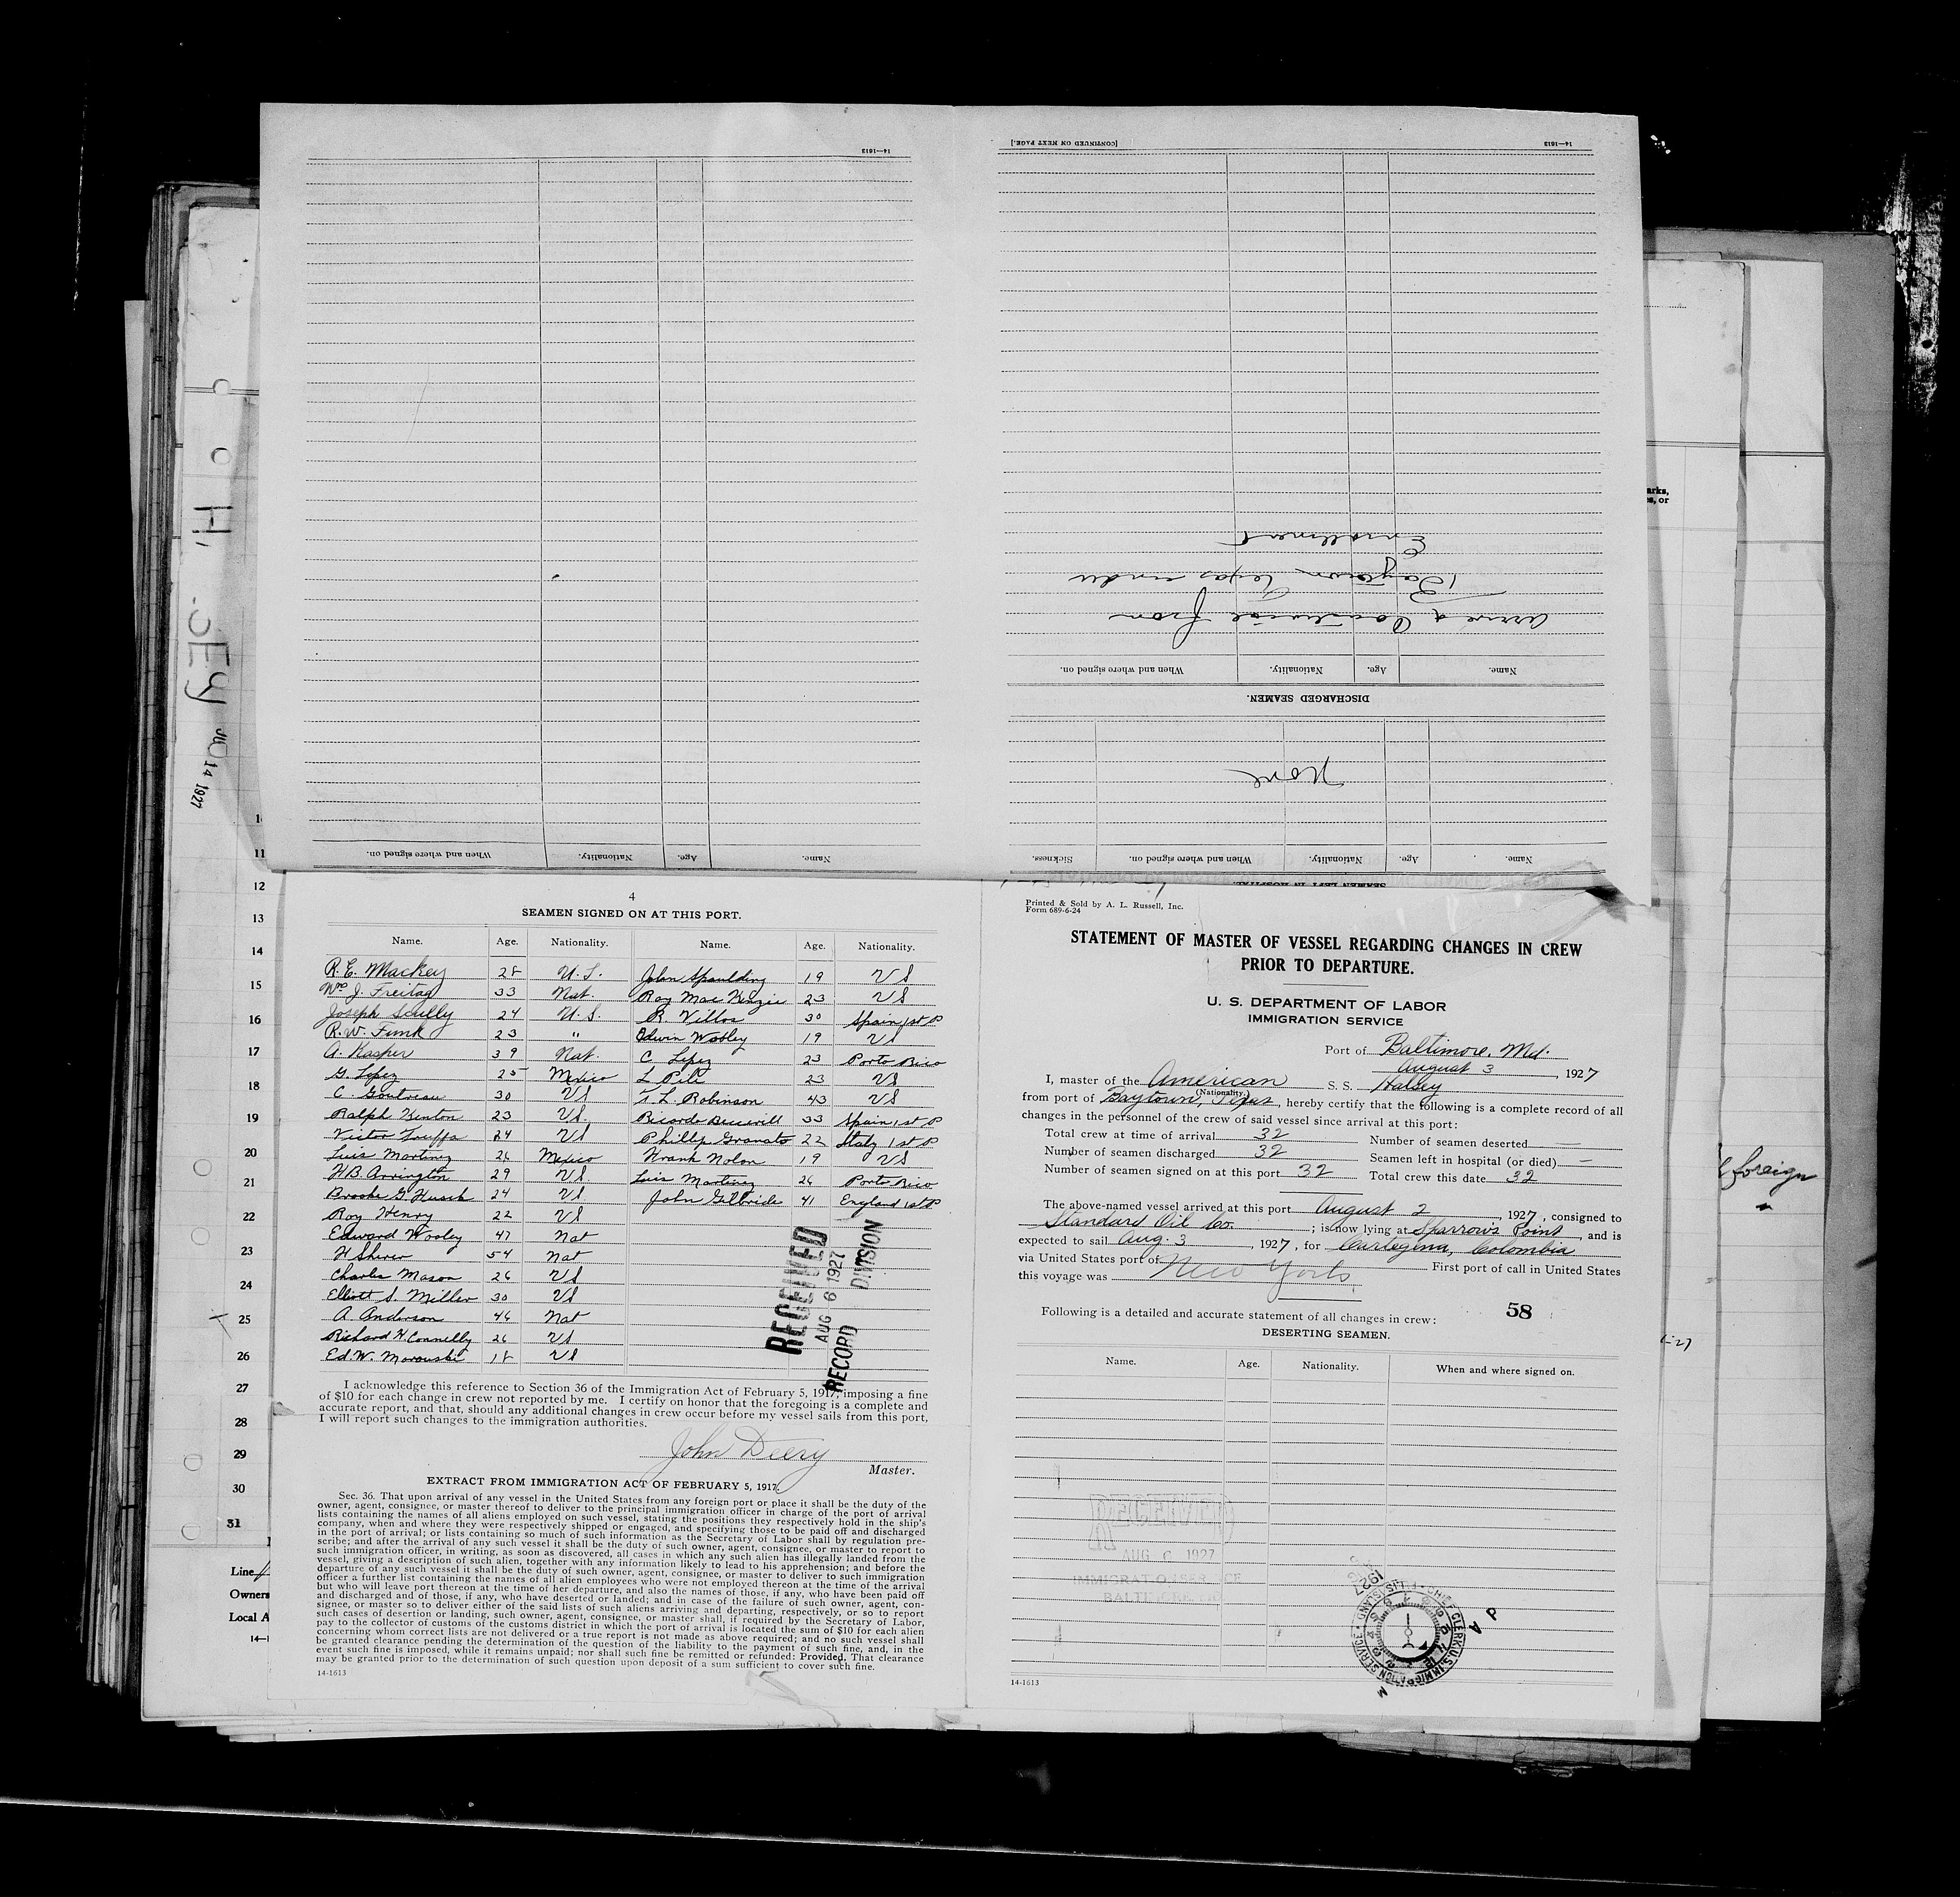 14—1613
When and where signed on.
Nationality.
Age.
Name.
[CONTINUED ON NEXT PAGE.]
14—1613
Enrollment
Baytown Texas under
arrived Coastwise from
Name.
Age.
Nationality.
When and where signed on.
DISCHARGED SEAMEN.
None
Name.
Age.
Nationality.
When and where signed on.
Sickness.
SEAMEN LEFT IN HOSPITAL.
4
SEAMEN SIGNED ON AT THIS PORT.
Name. Age. Nationality. Name. Age. Nationality.
R. E. Mackey 28 U.S. John Spaulding 19 US
Wm J. Freitag 33 Nat. Roy MacKenzie 23 US
Joseph Scully 24 U.S. R Villos 30 Spain 1st P
R. W. Funk 23 " Edwin Wobley 19 US
A. Kasper 39 Nat. C Lopez 23 Porto Rico
G. Lopez 25 Mexico L Pile 23 US
C. 30 US L. Robinson 43 US
Ralph Kenton 23 US. Ricardo 33 Spain 1st P
Victor 24 US Phillip Granato 22 Italy 1st P
Luis Martinez 26 Mexico Frank Nolon 19 US
H B. Arrington 29 US. Luis Martinez 26 Porto Rico
Brooke G. 24 US John Gilbride 41 England 1st P
Roy Henry 22 US
Edward Wooley 47 Nat
H 54 Nat
Charles Mason 26 US
Elliott S. Miller 30 US
A. Anderson 46 Nat
Richard H. Connelly 26 US
Ed. W. 18 US
RECEIVED
AUG 6 1927
RECORD DIVISION
I acknowledge this reference to Section 36 of the Immigration Act of February 5, 1917, imposing a fine
of $10 for each change in crew not reported by me. I certify on honor that the foregoing is a complete and
accurate report, and that, should any additional changes in crew occur before my vessel sails from this port,
I will report such changes to the immigration authorities.
John Deery
Master.
EXTRACT FROM IMMIGRATION ACT OF FEBRUARY 5, 1917.
Sec. 36. That upon arrival of any vessel in the United States from any foreign port or place it shall be the duty of the
owner, agent, consignee, or master thereof to deliver to the principal immigration officer in charge of the port of arrival
lists containing the names of all aliens employed on such vessel, stating the positions they respectively hold in the ship's
company, when and where they were respectively shipped or engaged, and specifying those to be paid off and discharged
in the port of arrival; or lists containing so much of such information as the Secretary of Labor shall by regulation pre-
scribe; and after the arrival of any such vessel it shall be the duty of such owner, agent, consignee, or master to report to
such immigration officer, in writing, as soon as discovered, all cases in which any such alien has illegally landed from the
vessel, giving a description of such alien, together with any information likely to lead to his apprehension; and before the
departure of any such vessel it shall be the duty of such owner, agent, consignee, or master to deliver to such immigration
officer a further list containing the names of all alien employees who were not employed thereon at the time of the arrival
but who will leave port thereon at the time of her departure, and also the names of those, if any, who have been paid off
and discharged and of those, if any, who have deserted or landed; and in case of the failure of such owner, agent, con-
signee, or master so to deliver either of the said lists of such aliens arriving and departing, respectively, or so to report
such cases of desertion or landing, such owner, agent, consignee, or master shall, if required by the Secretary of Labor,
pay to the collector of customs of the customs district in which the port of arrival is located the sum of $10 for each alien
concerning whom correct lists are not delivered or a true report is not made as above required; and no such vessel shall
be granted clearance pending the determination of the question of the liability to the payment of such fine, and, in the
event such fine is imposed, while it remains unpaid; nor shall such fine be remitted or refunded: Provided, That clearance
may be granted prior to the determination of such question upon deposit of a sum sufficient to cover such fine.
14-1613
Printed & Sold by A. L. Russell, Inc.
Form 689-6-24
STATEMENT OF MASTER OF VESSEL REGARDING CHANGES IN CREW
PRIOR TO DEPARTURE.
U. S. DEPARTMENT OF LABOR
IMMIGRATION SERVICE
Port of Baltimore, Md.
August 3, 1927
I, master of the American S. S. Halsey
(Nationality.)
from port of Baytown, Texas, hereby certify that the following is a complete record of all
changes in the personnel of the crew of said vessel since arrival at this port:
Total crew at time of arrival 32 Number of seamen deserted —
Number of seamen discharged 32 Seamen left in hospital (or died) —
Number of seamen signed on at this port 32 Total crew this date 32
The above-named vessel arrived at this port August 2, 1927, consigned to
Standard Oil Co.; is now lying at Sparrows Point, and is
expected to sail Aug. 3, 1927, for Cartegena, Colombia
via United States port of First port of call in United States
this voyage was New York
Following is a detailed and accurate statement of all changes in crew: 58
DESERTING SEAMEN.
Name. Age. Nationality. When and where signed on.
RECEIVED
AUG 6 1927
14-1613
1927
CHIEF CLERK U.S. IMMIGRATION SERVICE
A P
M
JUL 14 1927
11
12
13
14
15
16
17
18
19
20
21
22
23
24
25
26
27
28
29
30
31
Line
Owners
Local A
14—1
foreign